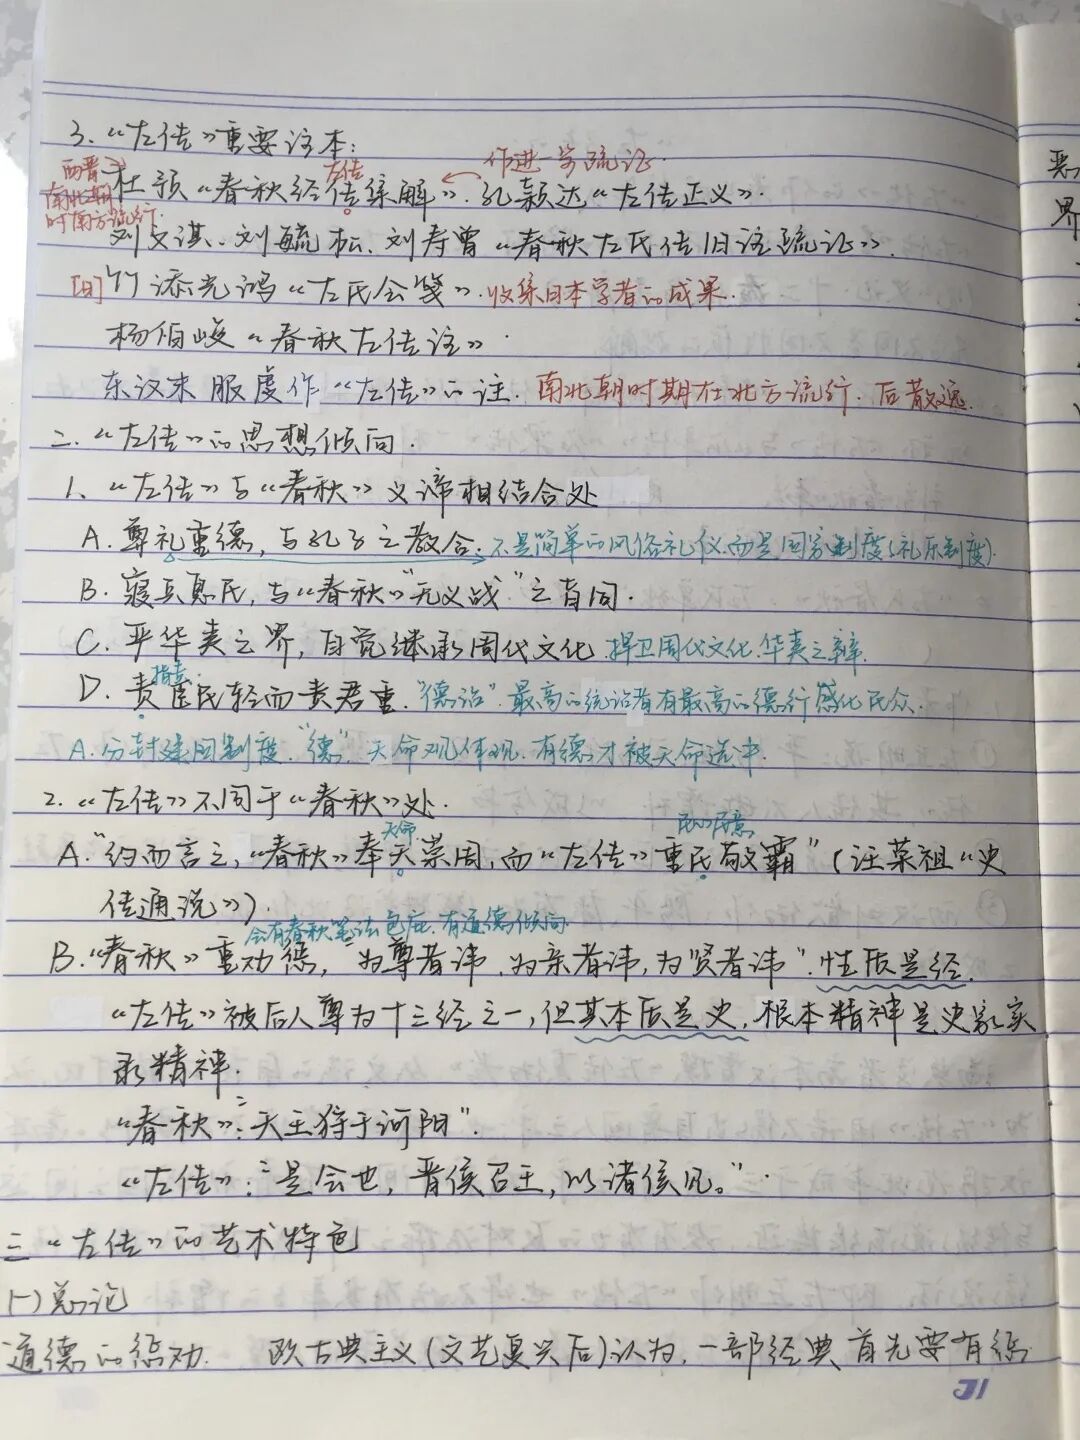 3、《左传》重要注本：
西晋 左传 作进一步疏证.
杜预《春秋经传集解》. 孔颖达《左传正义》.
南北朝时南方流行.
刘文淇、刘毓崧、刘寿曾《春秋左氏传旧注疏证》.
[日]竹添光鸿《左氏会笺》. 收集日本学者的成果.
杨伯峻《春秋左传注》.
东汉末服虔作《左传》的注. 南北朝时期在北方流行. 后散逸.
二、《左传》的思想倾向.
1、《左传》与《春秋》义谛相结合处
A. 尊礼重德, 与孔子之教合: 不是简单的风俗礼仪.而是国家制度(礼乐制度).
B. 寝兵息民, 与《春秋》"无义战"之旨同.
C. 严华夷之界, 自觉继承周代文化. 捍卫周代文化.华夷之辨.
D. 责臣民轻而责君重. "德治". 最高的统治者有最高的德行感化民众.
A. 分封建国制度. "德". 天命观体现. 有德才被天命选中.
2.《左传》不同于《春秋》处.
天命 民心民意
A."约而言之,《春秋》奉天崇周, 而《左传》重民敬霸"(汪荣祖《史
传通说》).
会有春秋笔法包庇. 有道德倾向.
B.《春秋》重劝惩, "为尊者讳, 为亲者讳, 为贤者讳". 性质是经.
《左传》被后人尊为十三经之一, 但其本质是史, 根本精神是史家实
录精神.
《春秋》: "天王狩于河阳".
《左传》: "是会也, 晋侯召王, 以诸侯见。"
三《左传》的艺术特色
(一) 总论
道德的惩劝. 欧古典主义(文艺复兴后)认为, 一部经典首先要有惩
恶
界